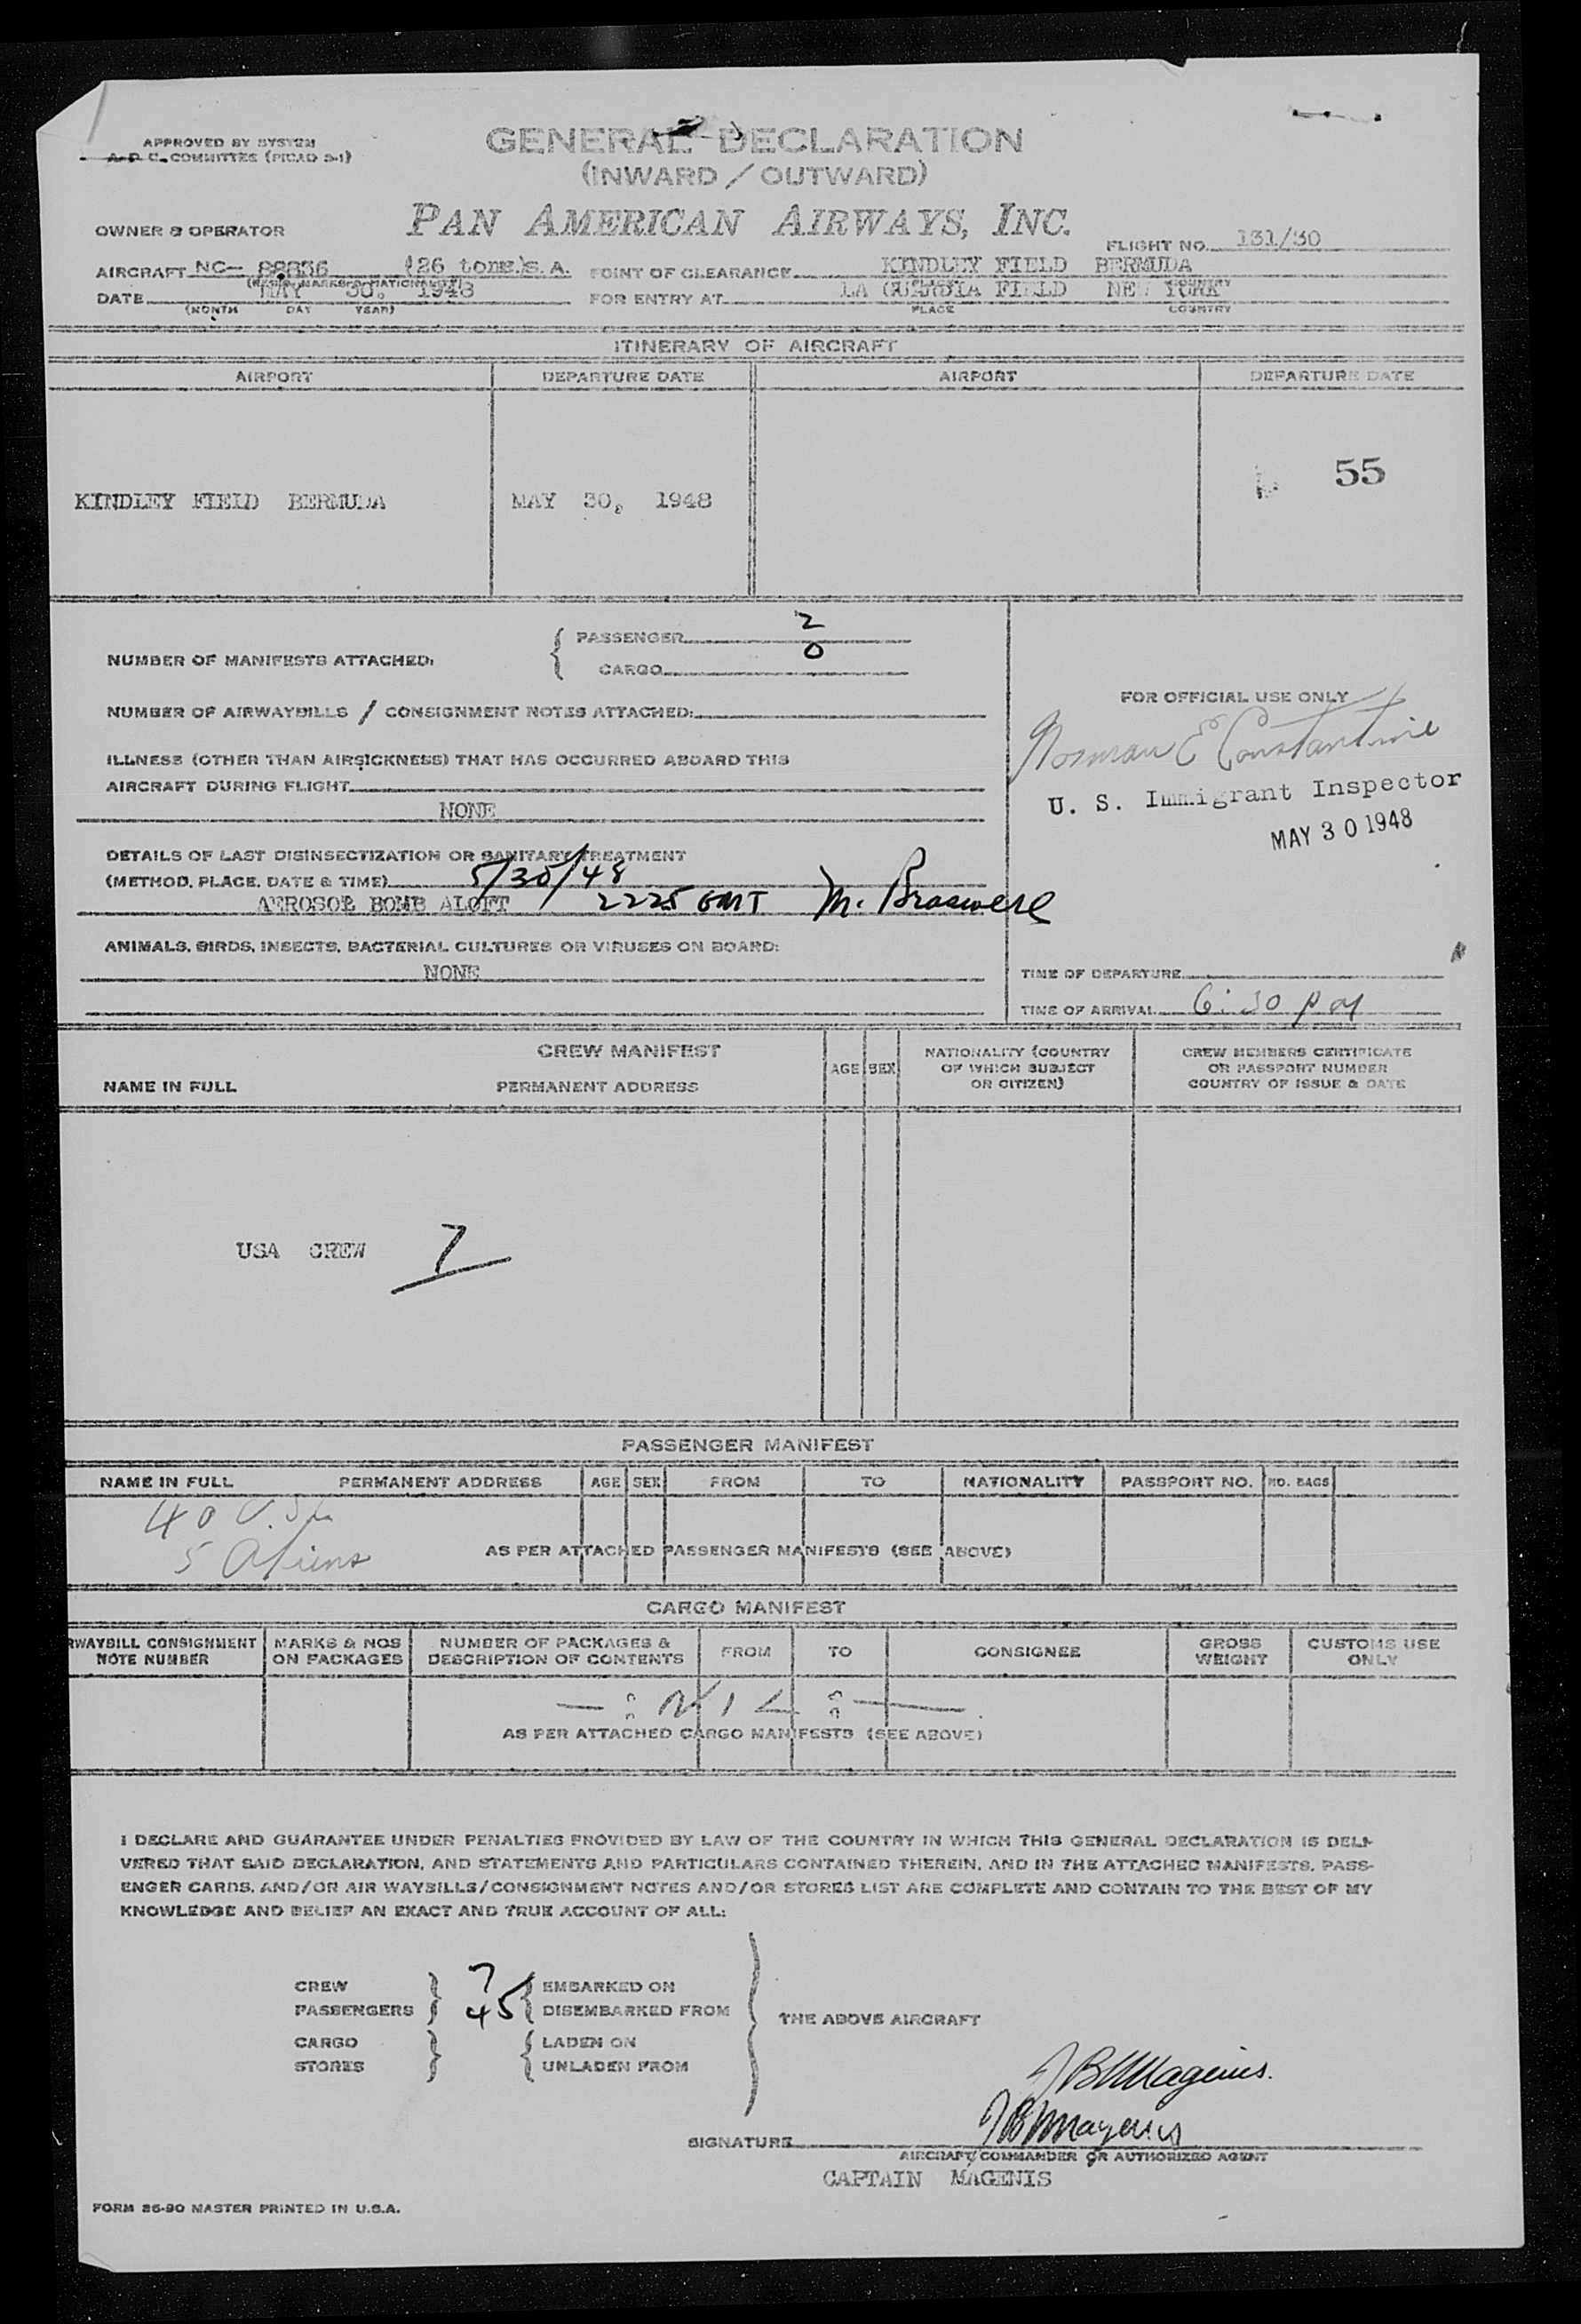 APPROVED BY SYSTEM
A. D. C. COMMITTEE (PICAO 3-1)
GENERAL DECLARATION
(INWARD / OUTWARD)
OWNER & OPERATOR PAN AMERICAN AIRWAYS, INC.
FLIGHT NO. 131/30
AIRCRAFT NC- 88836 (26 tons) S. A. POINT OF CLEARANCE KINDLEY FIELD BERMUDA
DATE MAY 30, 1948 FOR ENTRY AT LA GUARDIA FIELD NEW YORK
(MONTH DAY YEAR) PLACE COUNTRY
ITINERARY OF AIRCRAFT
AIRPORT DEPARTURE DATE AIRPORT DEPARTURE DATE
55
KINDLEY FIELD BERMUDA MAY 30, 1948
NUMBER OF MANIFESTS ATTACHED: PASSENGER 2
CARGO 0
NUMBER OF AIRWAYBILLS / CONSIGNMENT NOTES ATTACHED:
ILLNESS (OTHER THAN AIRSICKNESS) THAT HAS OCCURRED ABOARD THIS
AIRCRAFT DURING FLIGHT
NONE
DETAILS OF LAST DISINSECTIZATION OR SANITARY TREATMENT
(METHOD, PLACE, DATE & TIME) 5/30/48
AEROSOL BOMB ALOFT 2225 GMT M. Braswell
ANIMALS, BIRDS, INSECTS, BACTERIAL CULTURES OR VIRUSES ON BOARD:
NONE
FOR OFFICIAL USE ONLY
Norman E Constantine
U. S. Immigrant Inspector
MAY 30 1948
TIME OF DEPARTURE
TIME OF ARRIVAL 6:30 PM
CREW MANIFEST
NAME IN FULL PERMANENT ADDRESS AGE SEX NATIONALITY (COUNTRY OF WHICH SUBJECT OR CITIZEN) CREW MEMBERS CERTIFICATE OR PASSPORT NUMBER COUNTRY OF ISSUE & DATE
USA CREW 7
PASSENGER MANIFEST
NAME IN FULL PERMANENT ADDRESS AGE SEX FROM TO NATIONALITY PASSPORT NO. NO. BAGS
40 U.S.
5 Aliens
AS PER ATTACHED PASSENGER MANIFESTS (SEE ABOVE)
CARGO MANIFEST
RWAYBILL CONSIGNMENT NOTE NUMBER MARKS & NOS ON PACKAGES NUMBER OF PACKAGES & DESCRIPTION OF CONTENTS FROM TO CONSIGNEE GROSS WEIGHT CUSTOMS USE ONLY
—: NIL :—
AS PER ATTACHED CARGO MANIFESTS (SEE ABOVE)
I DECLARE AND GUARANTEE UNDER PENALTIES PROVIDED BY LAW OF THE COUNTRY IN WHICH THIS GENERAL DECLARATION IS DELI-
VERED THAT SAID DECLARATION, AND STATEMENTS AND PARTICULARS CONTAINED THEREIN, AND IN THE ATTACHED MANIFESTS, PASS-
ENGER CARDS, AND/OR AIR WAYBILLS/CONSIGNMENT NOTES AND/OR STORES LIST ARE COMPLETE AND CONTAIN TO THE BEST OF MY
KNOWLEDGE AND BELIEF AN EXACT AND TRUE ACCOUNT OF ALL:
CREW 7 EMBARKED ON
PASSENGERS 45 DISEMBARKED FROM
THE ABOVE AIRCRAFT
CARGO LADEN ON
STORES UNLADEN FROM
JB Magenis.
SIGNATURE JB Magenis
AIRCRAFT COMMANDER OR AUTHORIZED AGENT
CAPTAIN MAGENIS
FORM 36-90 MASTER PRINTED IN U.S.A.